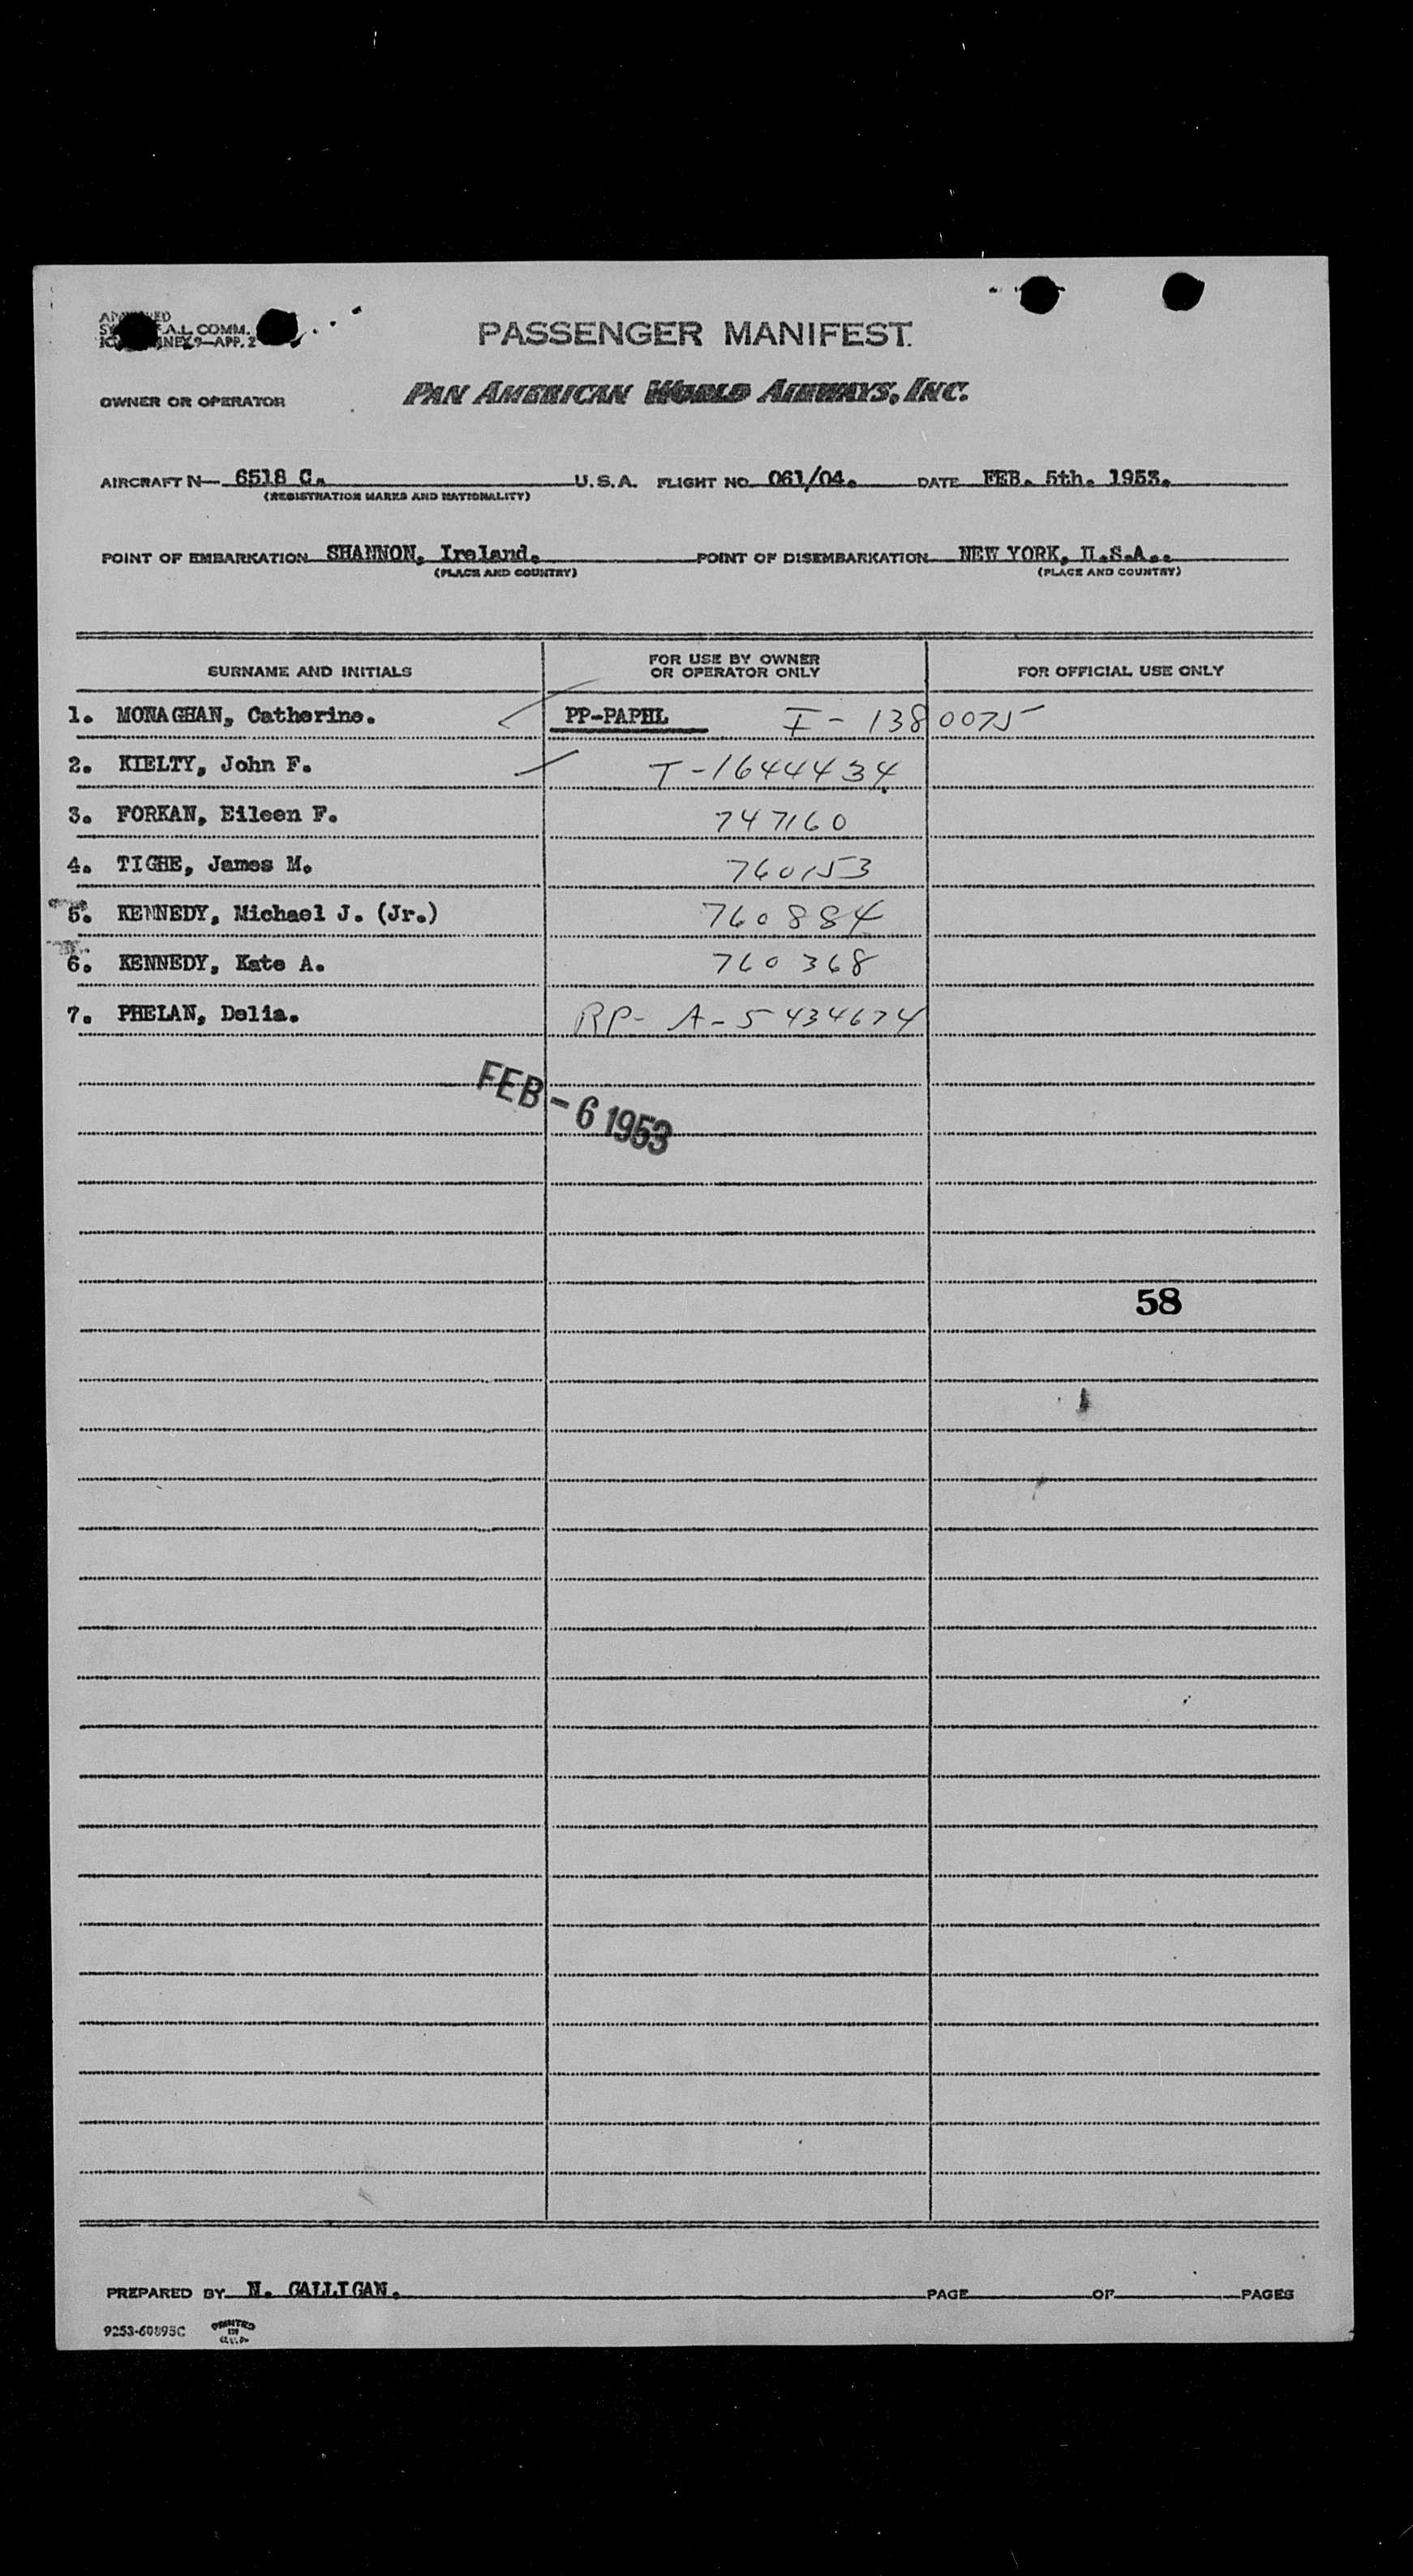 PASSENGER MANIFEST.
A.L. COMM.
9-APP. 2
OWNER OR OPERATOR PAN AMERICAN WORLD AIRWAYS, INC.
AIRCRAFT N- 6518 C. U.S.A. FLIGHT NO. 061/04. DATE FEB. 5th. 1953.
(REGISTRATION MARKS AND NATIONALITY)
POINT OF EMBARKATION SHANNON, Ireland. POINT OF DISEMBARKATION NEW YORK, U.S.A..
(PLACE AND COUNTRY) (PLACE AND COUNTRY)
SURNAME AND INITIALS FOR USE BY OWNER OR OPERATOR ONLY FOR OFFICIAL USE ONLY
1. MONAGHAN, Catherine. PP-PAPHL I-1380075
2. KIELTY, John F. I-1644434
3. FORKAN, Eileen F. 747160
4. TIGHE, James M. 760153
5. KENNEDY, Michael J. (Jr.) 760884
6. KENNEDY, Kate A. 760368
7. PHELAN, Delia. RP- A-5434674
FEB-6 1953
58
PREPARED BY N. GALLIGAN. PAGE OF PAGES
9253-60895C PRINTED IN